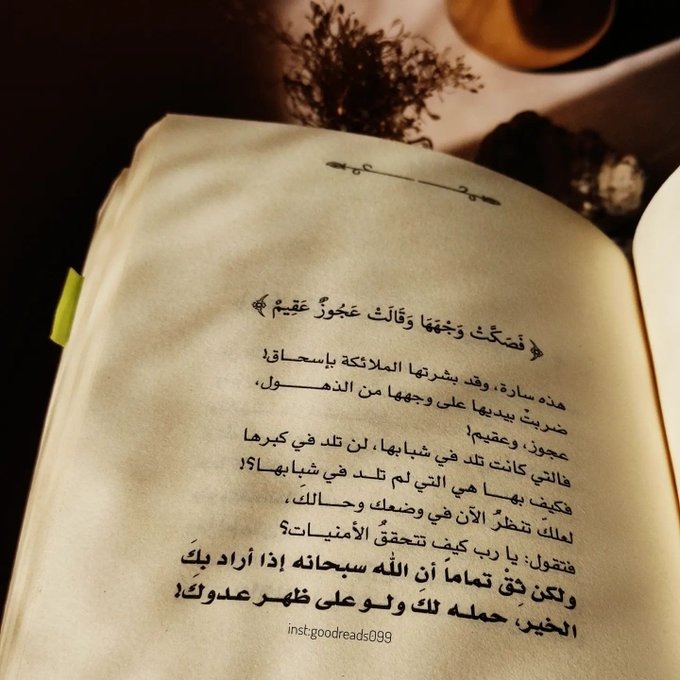 ﴿ فَصَكَّتْ وَجْهَهَا وَقَالَتْ عَجُوزٌ عَقِيمٌ ﴾
هذه سارة، وقد بشرتها الملائكة بإسحاق!
ضربتْ بيديها على وجهها من الذهول،
عجوز، وعقيم!
فالتي كانت تلد في شبابها، لن تلد في كبرها
فكيف بها هي التي لم تلد في شبابها؟!
لعلكَ تنظرُ الآن في وضعك وحالكَ،
فتقول: يا رب كيف تتحققُ الأمنيات؟
ولكن ثِقْ تماماً أن الله سبحانه إذا أراد بكَ
الخير، حمله لكَ ولو على ظهر عدوكَ!
inst:goodreads099